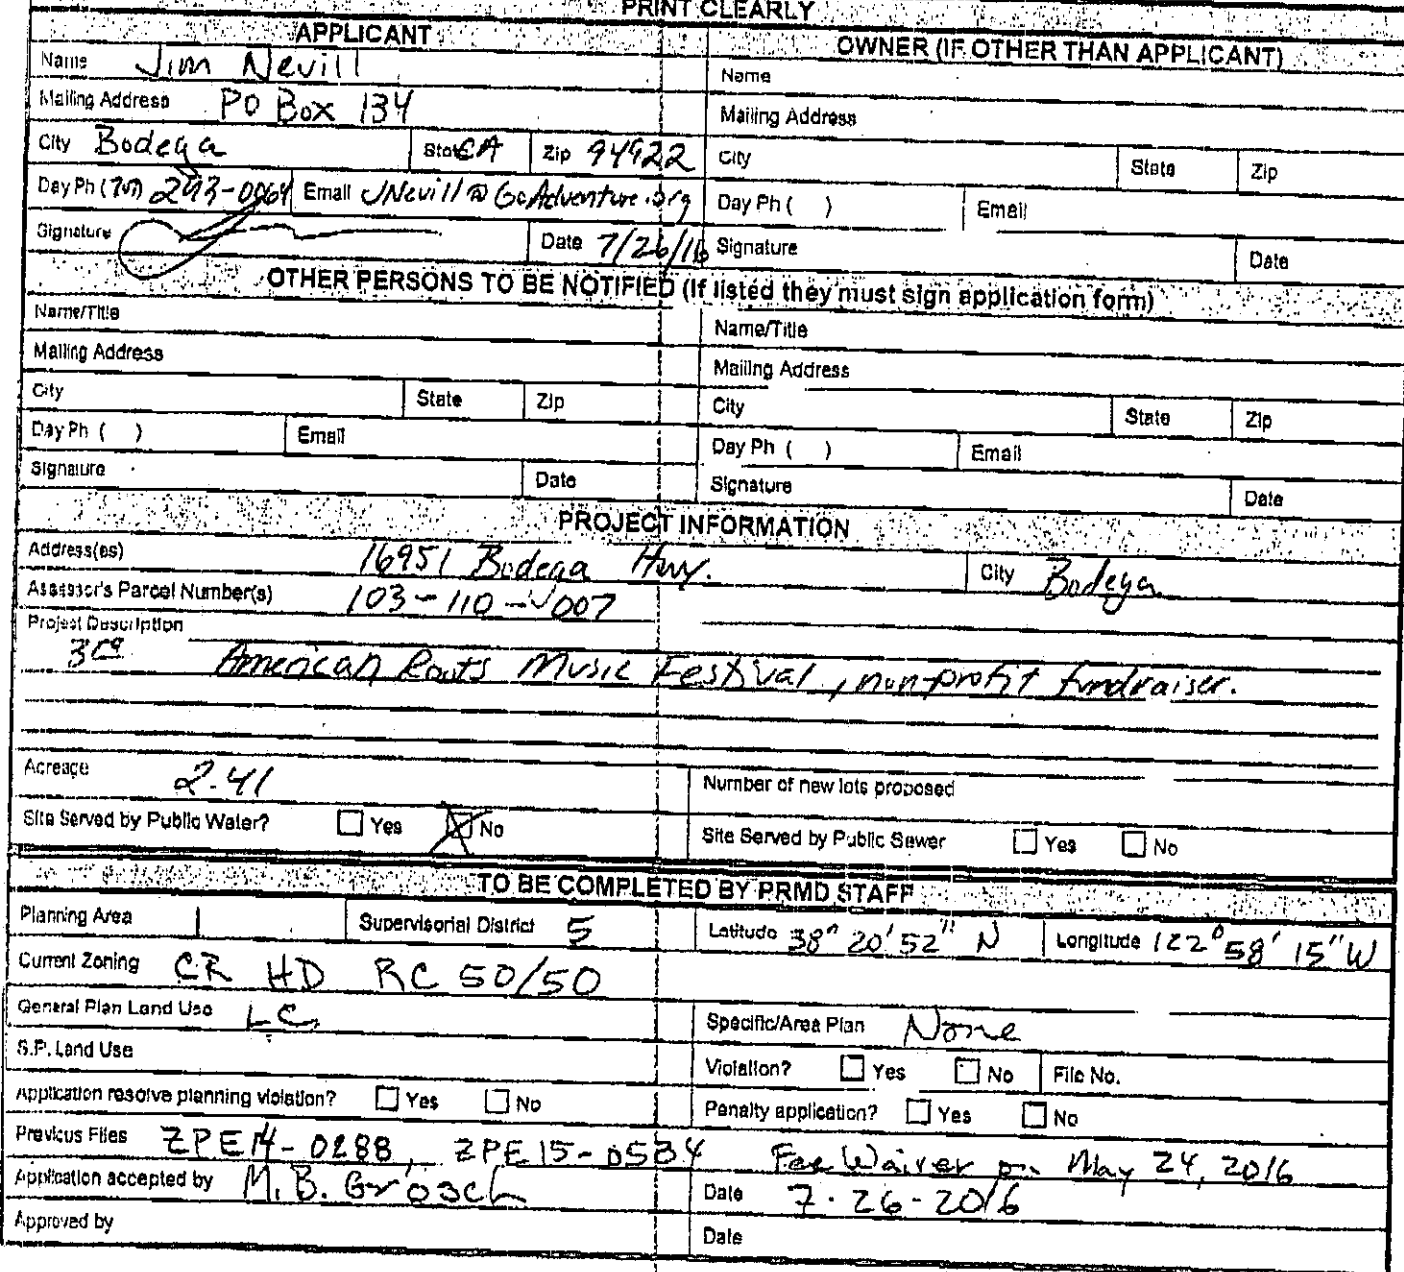 PRINT CLEARLY
APPLICANT
OWNER (IF OTHER THAN APPLICANT)
Name Jim Nevill
Name
Mailing Address PO Box 134
Mailing Address
City Bodega State CA Zip 94922
City State Zip
Day Ph (707) 293-0064 Email JNevill@GoAdventure.org
Day Ph ( ) Email
Signature Date 7/26/16
Signature Date
OTHER PERSONS TO BE NOTIFIED (If listed they must sign application form)
Name/Title
Name/Title
Mailing Address
Mailing Address
City State Zip
City State Zip
Day Ph ( ) Email
Day Ph ( ) Email
Signature Date
Signature Date
PROJECT INFORMATION
Address(es) 16951 Bodega Hwy. City Bodega
Assessor's Parcel Number(s) 103-110-007
Project Description
3rd American Roots Music Festival, non-profit fundraiser.
Acreage 2.41
Number of new lots proposed
Site Served by Public Water? Yes No
Site Served by Public Sewer Yes No
TO BE COMPLETED BY PRMD STAFF
Planning Area 1 Supervisorial District 5 Latitude 38° 20' 52" N Longitude 122° 58' 15" W
Current Zoning CR HD RC 50/50
General Plan Land Use LC
Specific/Area Plan None
S.P. Land Use
Violation? Yes No File No.
Application resolve planning violation? Yes No
Penalty application? Yes No
Previous Files ZPE14-0288, ZPE15-0584 Fee Waiver on May 24, 2016
Application accepted by M.B. Grosch Date 7-26-2016
Approved by Date